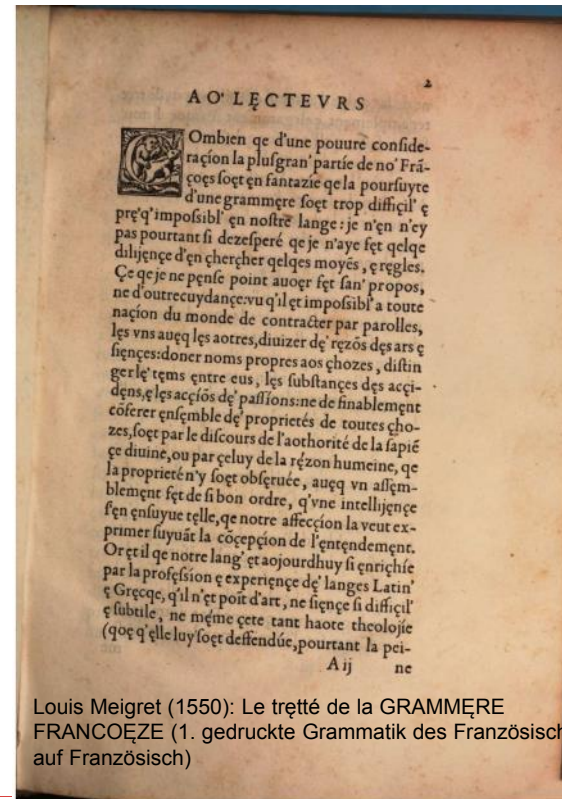 2
AO' LĘCTEVRS
COmbien qe d'une pouure conside-
raçíon la plusgran' partíe de no' Frã-
çoęs soęt ęn fantazíe qe la poursuyte
d'une grammęre soęt trop diffiçil' ę
prę'q'impossibl' ęn nostre lange : je n'ęn n'ey
pas pourtant si dezesperé qe je n'aye fęt qelqe
dilijęnçe d'ęn chęrcher qelqes moyẽs, ę ręgles.
Çe qe je ne pęnse point auoęr fęt san' propos,
ne d'outrecuydançe: vu q'il ęt impossibl' a toute
naçíon du monde de contracter par parolles,
lęs vns auęq lęs aotres, diuizer dę' ręzõs dęs ars ę
siençes: doner noms propres aos chozes, distin
ger lę' tems entre eus, lęs substançes dęs acçi-
dęns, ę lęs acçíõs dę' passíons: ne de finablemęnt
cõferer ęnsęmble dę' proprietés de toutes cho-
zes, soęt par le discours de l'aothorité de la sapiẽ
çe diuine, ou par çeluy de la rézon humeine, qe
la proprieté n'y soęt obsęruée, auęq vn assęm-
blemęnt fęt de si bon ordre, q'vne intellijęnçe
s'ęn ęnsuyue tęlle, qe notre affecçíon la veut ex-
primer suyuãt la cõçepçíon de l'ęntęndemęnt.
Or ęt il qe notre lang' ęt aojourdhuy si ęnrichíe
par la profęssíon ę experięnçe dę' langes Latin'
ę Gręcqe, q'il n'ęt poĩt d'art, ne sięnçe si diffiçil'
ę subtile, ne méme çete tant haote theolojíe
(qoę q'ęlle luy soęt deffendúe, pourtant la pei-
A ij ne
Louis Meigret (1550): Le tręttė de la GRAMMĘRE
FRANCOĘZE (1. gedruckte Grammatik des Französisch
auf Französisch)